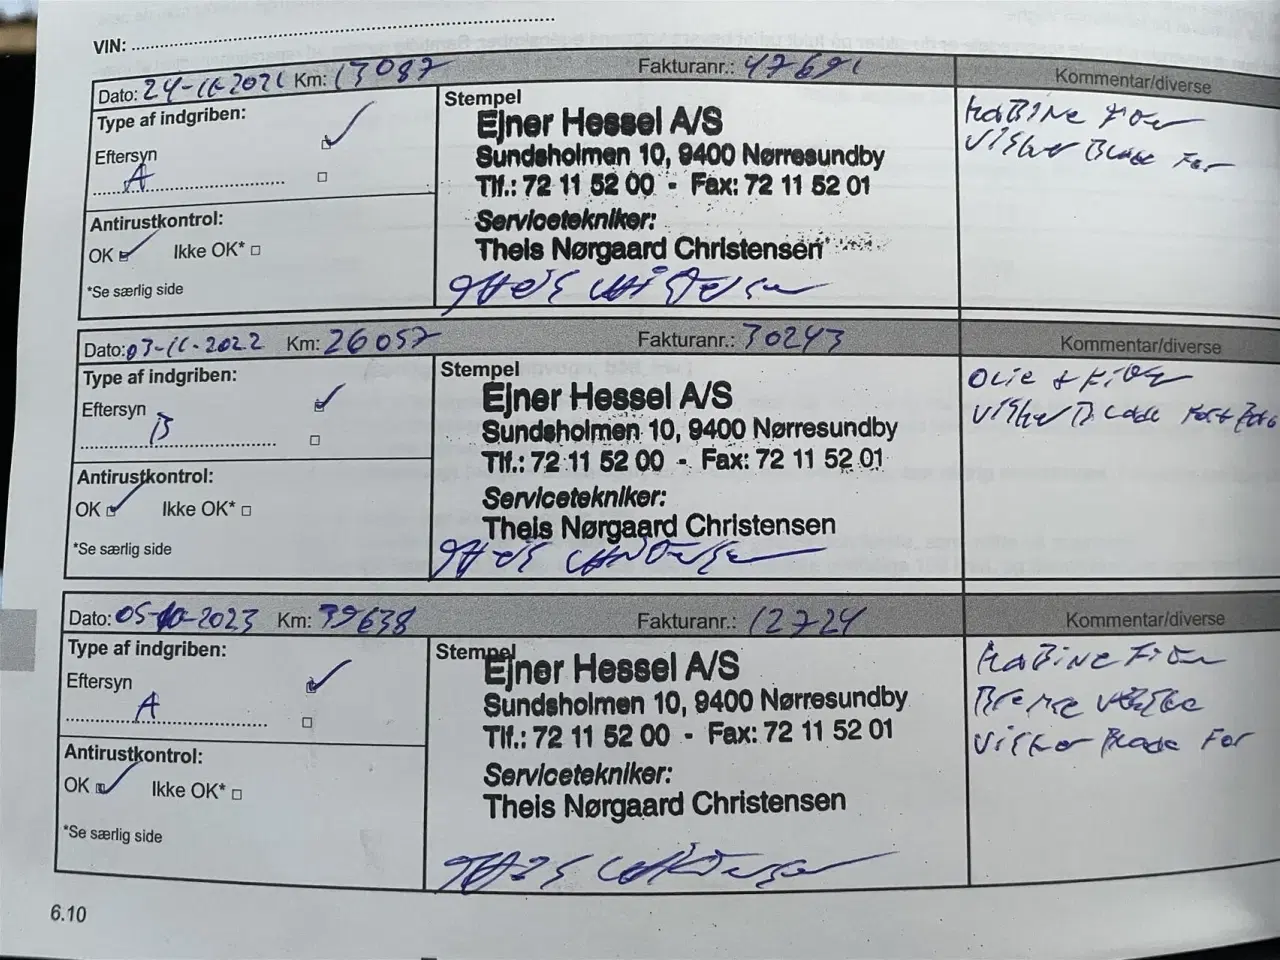 VIN:
Dato: 24-11-2021 Km: 13087 Fakturanr.: 47691 Kommentar/diverse
Type af indgriben:
Eftersyn
A
Antirustkontrol:
OK Ikke OK*
*Se særlig side
Stempel
Ejner Hessel A/S
Sundsholmen 10, 9400 Nørresundby
Tlf.: 72 11 52 00 - Fax: 72 11 52 01
Servicetekniker:
Theis Nørgaard Christensen
KABINE
Visker Blade For
Dato: 03-11-2022 Km: 26057 Fakturanr.: 30243 Kommentar/diverse
Type af indgriben:
Eftersyn
B
Antirustkontrol:
OK Ikke OK*
*Se særlig side
Stempel
Ejner Hessel A/S
Sundsholmen 10, 9400 Nørresundby
Tlf.: 72 11 52 00 - Fax: 72 11 52 01
Servicetekniker:
Theis Nørgaard Christensen
Olie +
Visker Blade
Dato: 05-10-2023 Km: 39638 Fakturanr.: 12724 Kommentar/diverse
Type af indgriben:
Eftersyn
A
Antirustkontrol:
OK Ikke OK*
*Se særlig side
Stempel
Ejner Hessel A/S
Sundsholmen 10, 9400 Nørresundby
Tlf.: 72 11 52 00 - Fax: 72 11 52 01
Servicetekniker:
Theis Nørgaard Christensen
KABINE
Bremse
Visker Blade For
6.10